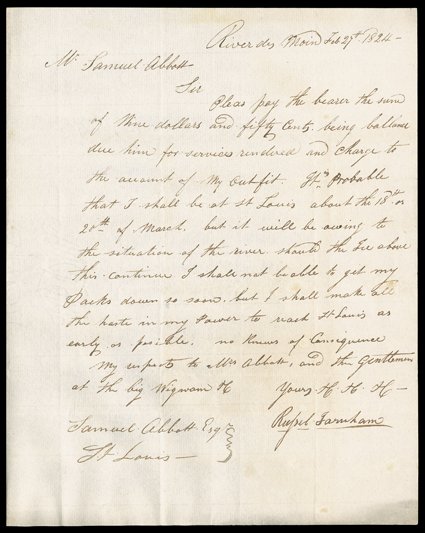 River des Moin Feb 29th 1824 –
Mr Samuel Abbott –
Sir
Pleas pay the bearer the sum
of Nine dollars and fifty Cents. being ballance
due him for services rendered and Charge to
the account of My outfit. Its Probable
that I shall be at St Louis about the 18th or
20th of March. but it will be owing to
the situation of the river. should the Ice above
this continue I shall not be able to get my
Packs down so soon. but I shall make all
the haste in my Power to reach St Louis as
early as posible. no knews of Consequence
My respects to Mrs Abbott, and the Gentlemen
at the big Wigwam &
Yours & & & –
Russel Farnham
Samuel Abbott Esq
St Louis –